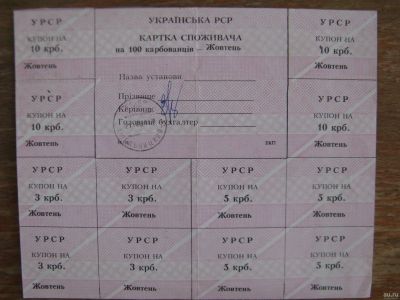 УРСР
КУПОН НА
10 крб.
Жовтень
УКРАЇНСЬКА РСР
КАРТКА СПОЖИВАЧА
на 100 карбованців – Жовтень
Назва установи
Прізвище
Керівник
Головний бухгалтер
УРСР
КУПОН НА
10 крб.
Жовтень
УРСР
КУПОН НА
10 крб.
Жовтень
УРСР
КУПОН НА
10 крб.
Жовтень
УРСР
КУПОН НА
3 крб.
Жовтень
УРСР
КУПОН НА
3 крб.
Жовтень
УРСР
КУПОН НА
5 крб.
Жовтень
УРСР
КУПОН НА
5 крб.
Жовтень
УРСР
КУПОН НА
3 крб.
Жовтень
УРСР
КУПОН НА
3 крб.
Жовтень
УРСР
КУПОН НА
5 крб.
Жовтень
УРСР
КУПОН НА
5 крб.
Жовтень
au.ru